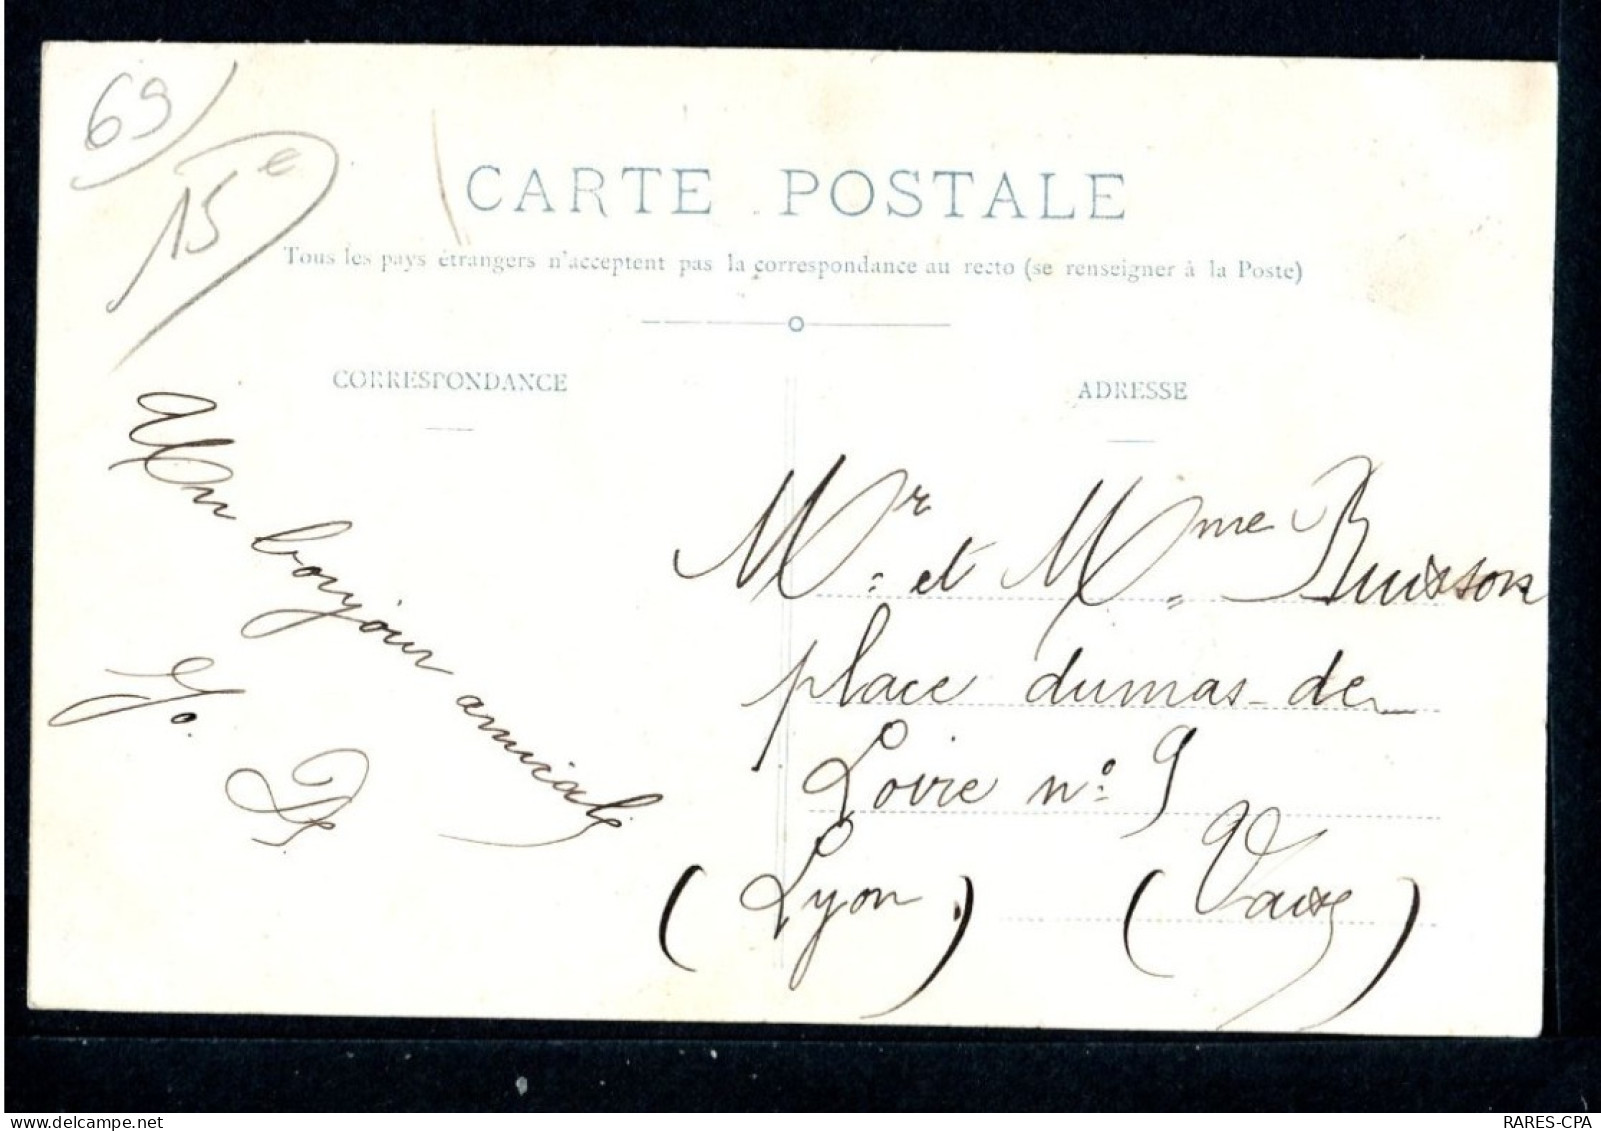 69
15e
CARTE POSTALE
Tous les pays étrangers n'acceptent pas la correspondance au recto (se renseigner à la Poste)
CORRESPONDANCE
Un bonjour amicale
ADRESSE
Mr. et Mme. Buisson
place dumas-de
Loire n° 9
(Lyon) (Vaise)
RARES-CPA